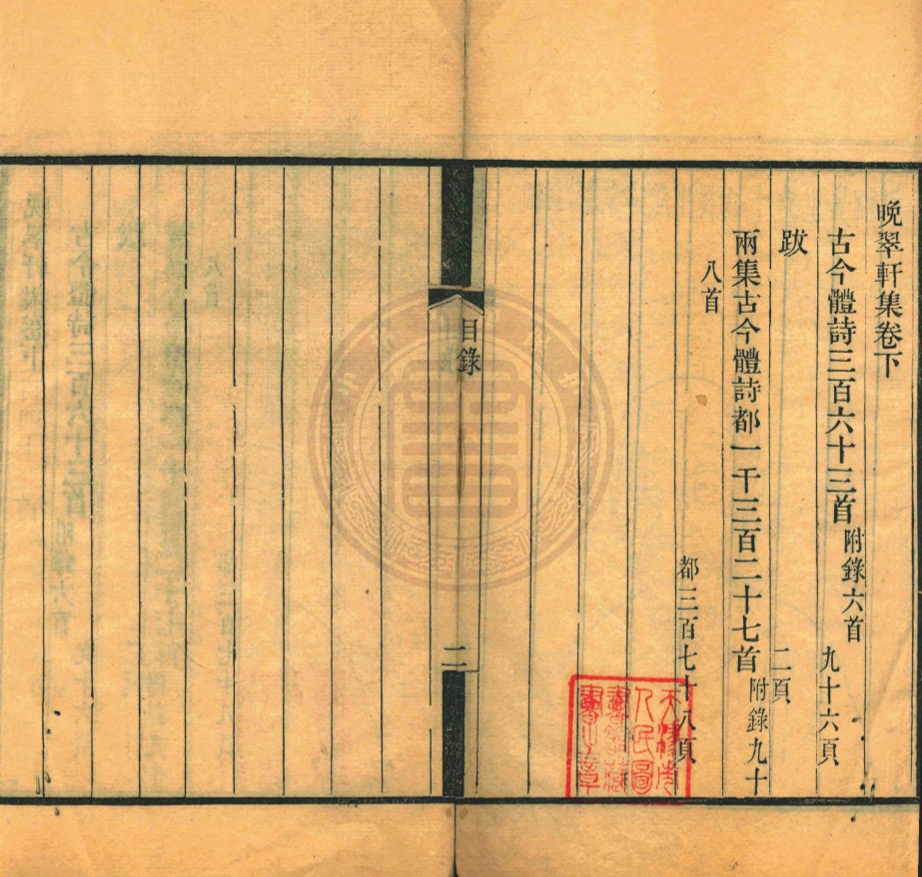 晚翠軒集卷下
古今體詩三百六十三首附錄六首 九十六頁
跋 二頁
兩集古今體詩都一千三百二十七首附錄九十
八首 都三百七十八頁
目錄
二